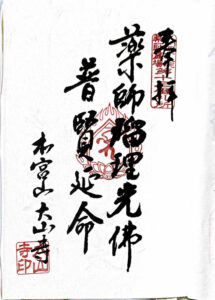 奉拝
薬師瑠璃光佛
普賢延命
本宮山大山寺